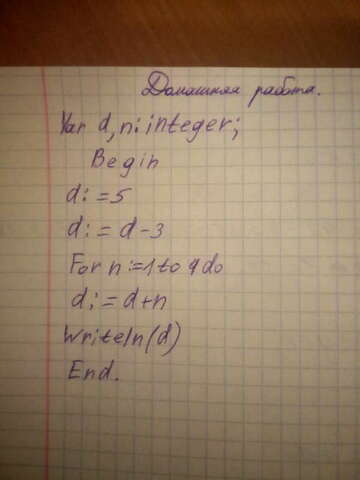 Домашняя работа.
Var d,n:integer;
Begin
d:=5
d:=d-3
For n:=1 to 9 do
d:=d+n
Writeln(d)
End.